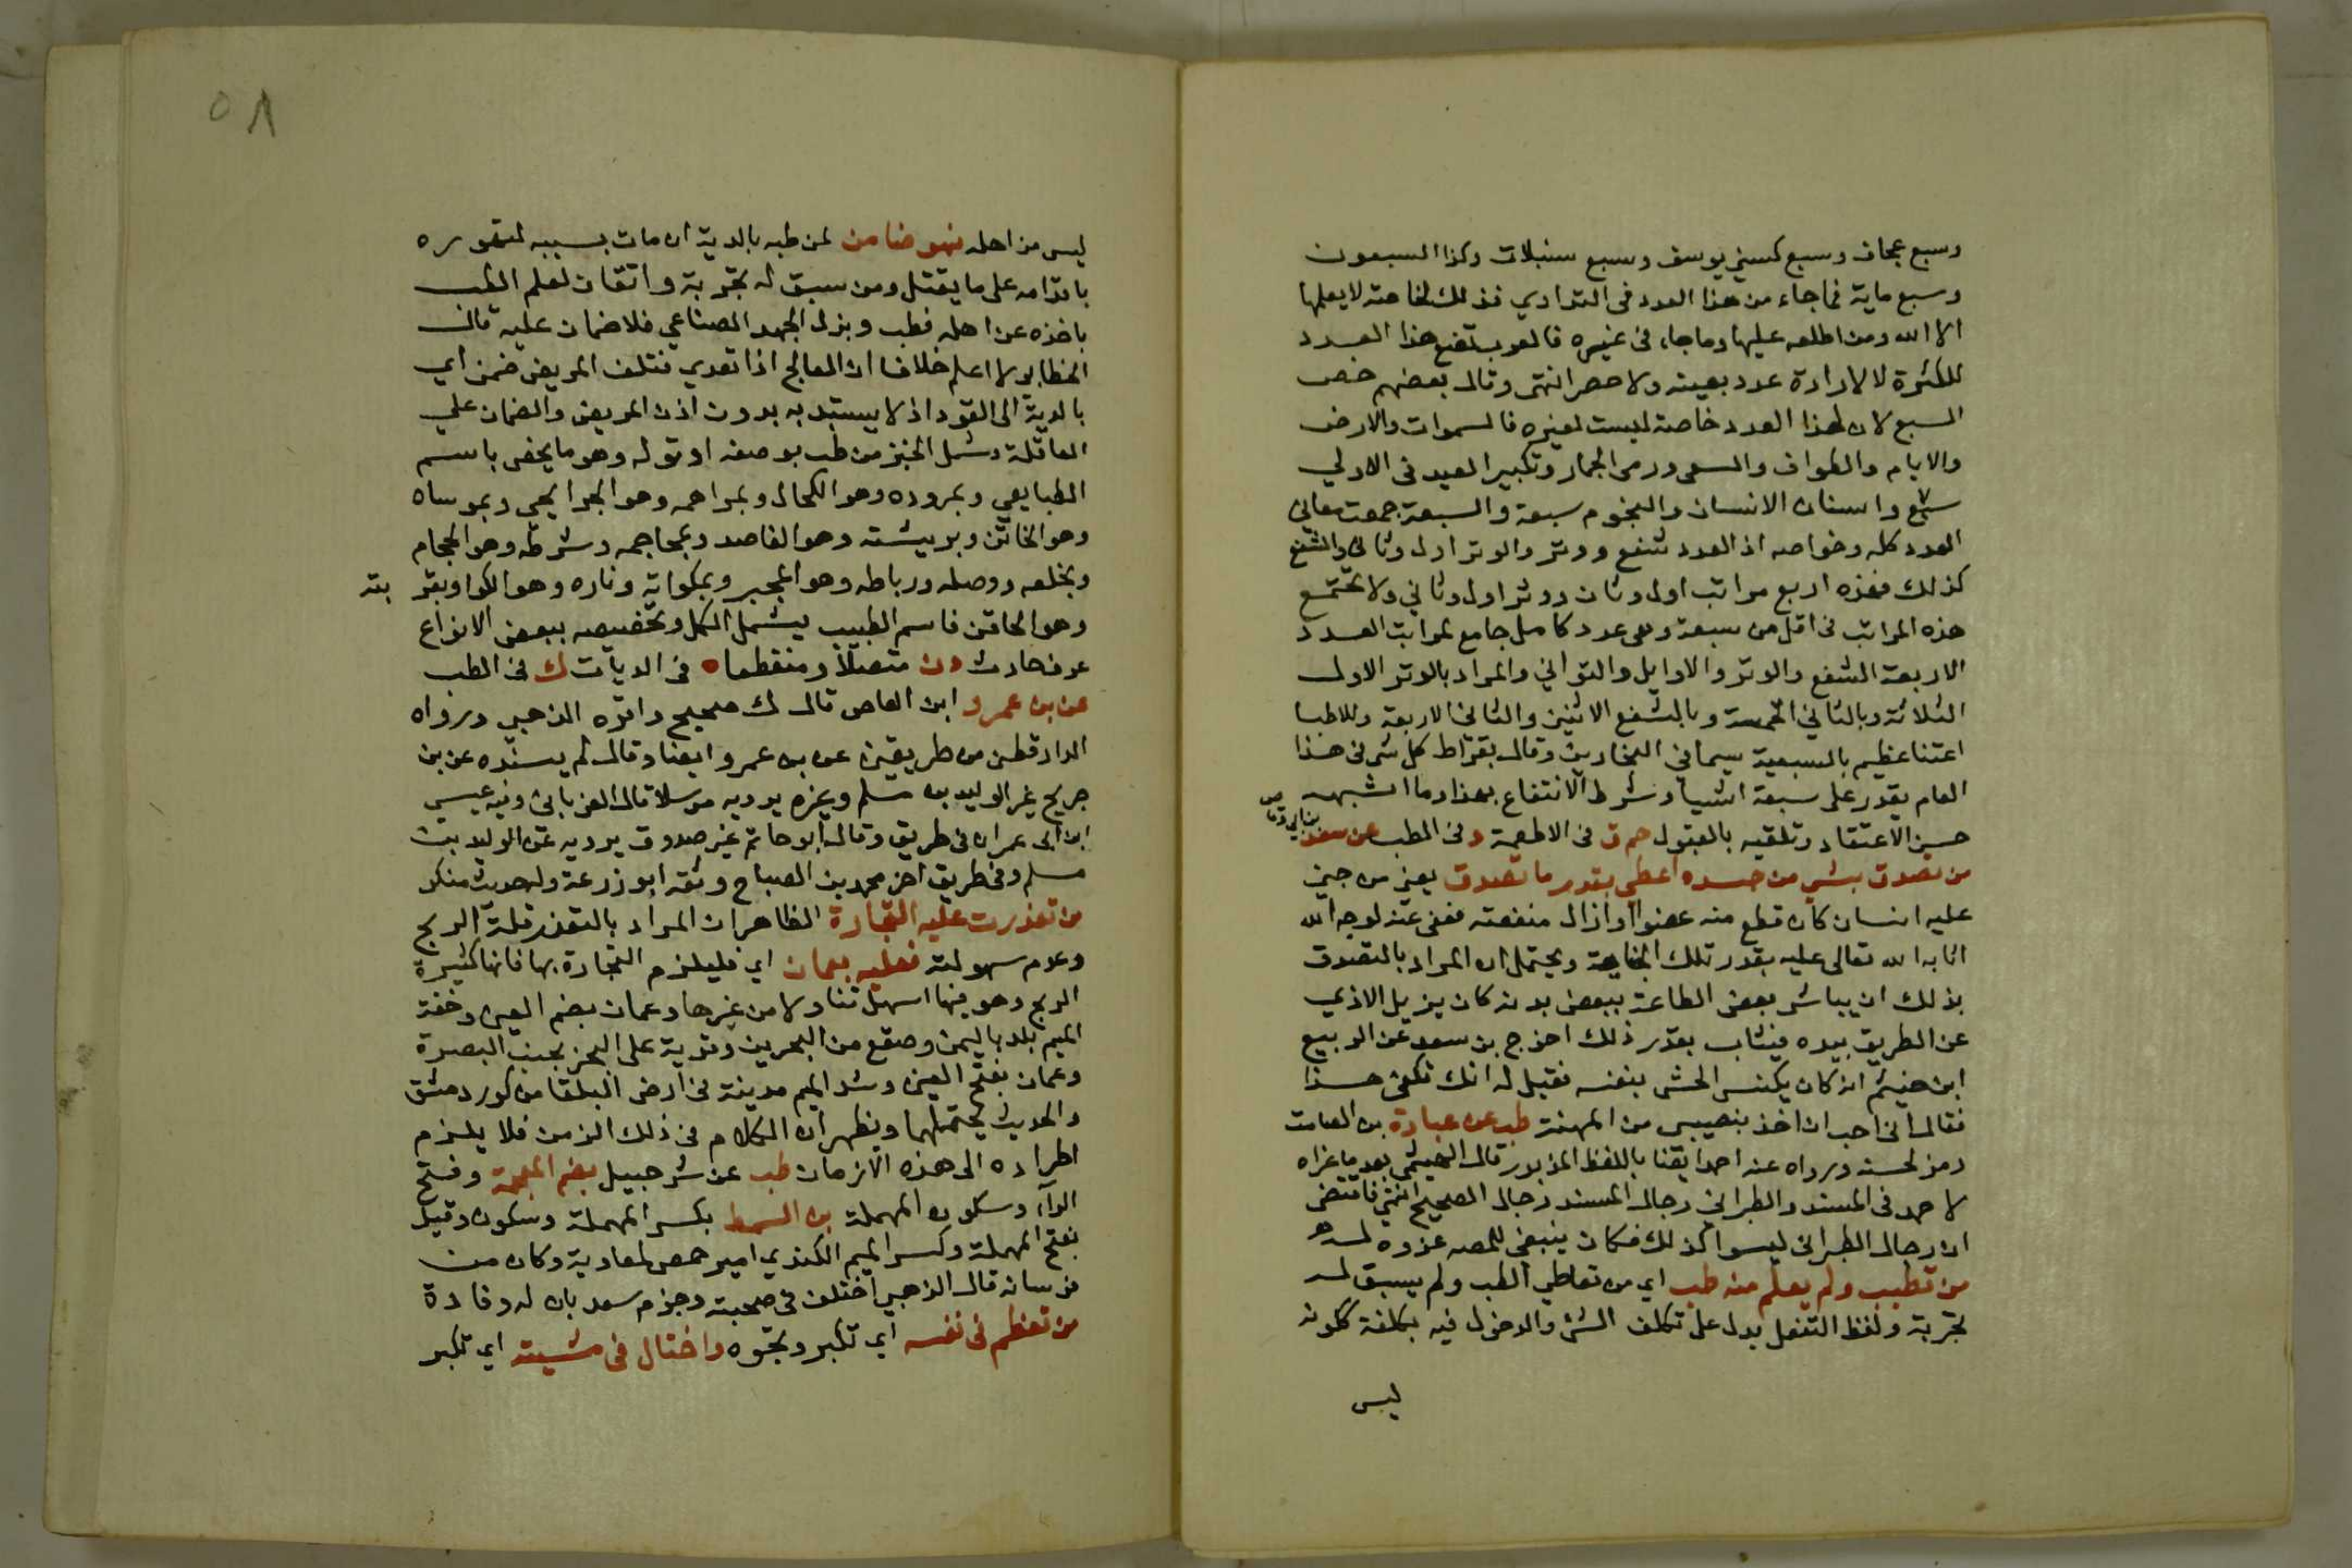 وسبع عجاف وسبع كسني يوسف وسبع سنبلات وكذا السبعون
وسبع ماية فما جاء من هذا العدد في التداوي فذلك لخاصة لا يعلمها
الا الله ومن اطلعه عليها وما جاء في غيره فالعرب تضع هذا العدد
للكثرة لا لارادة عدد بعينه ولا حصر انتهى وقال بعضهم خص
السبع لان لهذا العدد خاصة ليست لغيره فالسموات والارض
والايام والطواف والسعى ورمى الجمار وتكبير العيد في الاولى
سبع واسنان الانسان والنجوم سبعة والسبعة جمعت معاني
العدد كله وخواصه اذ العدد شفع ووتر والوتر اول وثاني والشفع
كذلك فهذه اربع مراتب اول وثان ووتر اول وثاني ولا تجتمع
هذه المراتب في اقل من سبعة وهى عدد كامل جامع لمراتب العدد
الاربعة الشفع والوتر والاوايل والثواني والمراد بالوتر الاول
الثلاثة وبالثاني الخمسة وبالشفع الاثنين والثاني الاربعة وللاطبا
اعتنا عظيم بالسبعة سيما في البحارين وقال بقراط كل شى في هذا
العالم يقدر على سبعة اشيا وشرط الانتفاع بهذا وما اشبهه
حسن الاعتقاد وتلقيه بالقبول حم ق في الاطعمة د في الطب عن سعد
بن ابي وقاص
من تصدق بشى من جسده اعطى بقدر ما تصدق يعني من جنى
عليه انسان كان قطع منه عضوا او ازال منفعته فعفى عنه لوجه الله
اثابه الله تعالى عليه بقدر تلك الجناية ويحتمل ان المراد بالتصدق
بذلك ان يباشر بعض الطاعة ببعض بدنه كان يزيل الاذي
عن الطريق بيده فيثاب بقدر ذلك اخرج بن سعد عن الربيع
ابن خيثم انه كان يكنس الحش بنفسه فقيل له انك تكفى هذا
فقال اني احب ان اخذ بنصيبي من المهنة طب عن عبادة بن الصامت
رمز لحسنه ورواه عنه احد ايضا باللفظ المزبور قال الهيثمي بعد ما عزاه
لاحمد في المسند والطبراني رجال المسند رجال الصحيح انتهى فاقتضى
ان رجال الطبراني ليسوا كذلك فكان ينبغي للمصه عزوه له
من تطبب ولم يعلم منه طب اي من تعاطى الطب ولم يسبق له
تجربة ولفظ التفعل يدل على تكلف الشى والدخول فيه بكلفة ككونه
ليس
٥٨
ليس من اهله فهو ضامن لمن طبه بالدية ان مات بسببه لتهوره
باقدامه على ما يقتل ومن سبق له تجربة واتقان لعلم الطب
باخذه عن اهله فطب وبذل الجهد الصناعي فلا ضمان عليه قال
الخطابي لا اعلم خلافا ان المعالج اذا تعدى فتلف المريض ضمن اي
بالدية الى القود اذ لا يستبد به بدون اذن المريض والضمان على
العاقلة وشمل الخبز من طب بوصفه او قوله وهو ما يخص باسم
الطبايعي وبمروده وهو الكحال وبمراهمه وهو الجرايحى وبموساه
وهو الخاتن وبريشته وهو الفاصد وبمحاجمه وشرطه وهو الحجام
وبخلعه ووصله ورباطه وهو المجبر وبمكواته وناره وهو الكوا وبقر
بته
وهو الحاقن فاسم الطبيب يشمل الكل وتخصيصه ببعض الانواع
عرف حادث د ن متصلا ومنقطعا ه في الديات ك في الطب
عن بن عمرو ابن العاص قال ك صحيح واقره الذهبي ورواه
الدارقطنى من طريقين عن بن عمرو ايضا وقال لم يسنده عن بن
جريج غير الوليد بن مسلم وغيره يرويه مرسلا قال الغرياني وفيه عيسى
ابن ابى عمران في طريق وقال ابو حاتم غير صدوق يرويه عن الوليد بن
مسلم وفي طريق اخر محمد بن الصباح وثقه ابو زرعة وله حديث منكر
من تعذرت عليه التجارة الظاهر ان المراد بالتعذر قلة الربح
وعدم سهولته فعليه بعمان اي فليلزم التجارة بها فانها كثيرة
الربح وهو فيها اسهل تناولا من غيرها وعمان بضم العين وخفة
الميم بلد باليمن وصقع من البحرين وقرية على البحر بجنب البصرة
وعمان بفتح العين وشد الميم مدينة في ارض البلقا من كور دمشق
والحديث يحتملهما ويظهر ان الكلام في ذلك الزمن فلا يلزم
اطراده الى هذه الازمان طب عن شرحبيل بضم المعجمة وفتح
الرآء وسكون المهملة بن السمط بكسر المهملة وسكون وقيل
بفتح المهملة وكسر الميم الكندي امير حمص لمعاوية وكان من
فرسانه قال الذهبي اختلف في صحبته وجزم سعد بان له وفادة
من تعظم في نفسه اي تكبر وتجوه واختال في مشيته اي تكبر